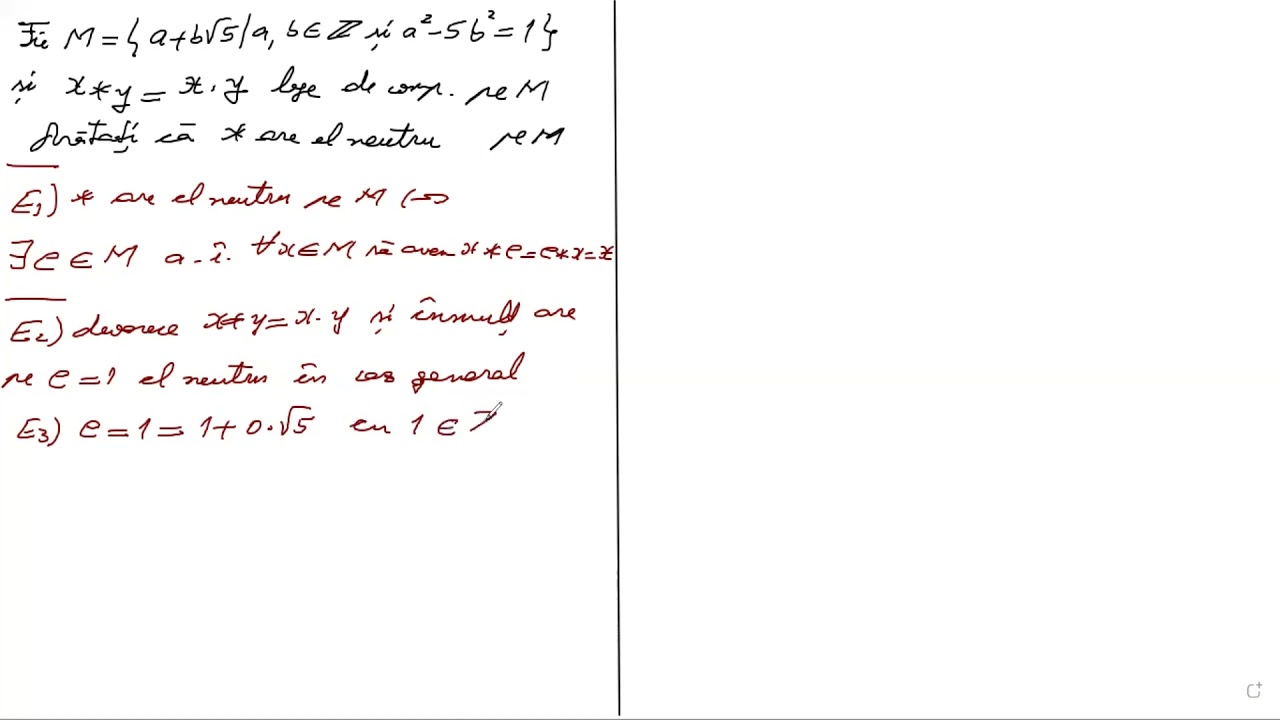 Fie M = { a+b√5 / a, b ∈ ℤ și a² - 5b² = 1 }
și x * y = x · y lege de comp. pe M
Arătați că * are el neutru pe M
E₁) * are el neutru pe M (=>
∃ e ∈ M a.î. ∀ x ∈ M să avem x * e = e * x = x
E₂) deoarece x * y = x · y și înmulț are
pe e = 1 el neutru în caz general
E₃) e = 1 = 1 + 0·√5 cu 1 ∈